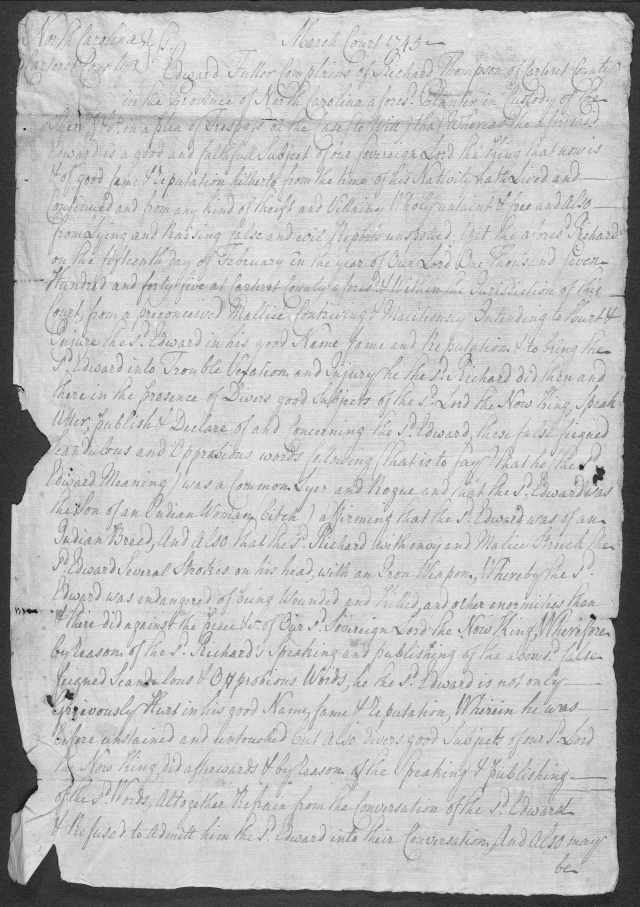 North Carolina & Ss March Court 1745
Carteret County Edward Fuller Complains of Richard Thompson of Carteret County
in the Province of North Carolina afores.d Planter in Custody of &c
that Whereas the aforesaid
Edward is a good and faithfull Subject of our Sovereign Lord the King that now is
& of good fame & Reputation hitherto from the time of his Nativity hath Lived and
Continued and from any kind of theift and Villainy Wholy untaint & free and Also
from Lying and Raising false and evil Reports unspotted. Yet the afores.d Richard
on the fifteenth day of February in the year of Our Lord One Thousand Seven
Hundred and forty five at Carteret County afores.d & Within the Jurisdiction of this
Court, from a preconceived Mallice Contriving & Intending to hurt &
Injure the S.d Edward in his good Name fame and Reputation & to bring the
S.d Edward into Trouble Vexation and Injury he the S.d Richard did then and
there in the presence of Divers good Subjects of the S.d Lord the Now King, Speak
Utter, publish & Declare of and Concerning the S.d Edward, these false feigned
Scandulous and words following (that is to say) that he (the S.d
Edward Meaning) was a Common Lyer and Rogue and that the S.d Edward was
the Son of an Indian Woman affirming that the S.d Edward was of an
Indian Breed, And Also that the S.d Richard with envy and Malice Struck the
S.d Edward Several Strokes on his head, with an Iron Weapon, Whereby the S.d
Edward was endangered of being Wounded and Killed, and other enormities then
& there did against the peace &c of Our S.d Sovereign Lord the Now King, Wherefore
by Reason of the S.d Richard's Speaking and publishing of the aboves.d false
feigned Scandulous & Words, he the S.d Edward is not only
Grievously Hurt in his good Name, fame & Reputation, Wherein he was
before unstained and untouched but Also divers good Subjects of our S.d Lord
the Now King, did afterwards & by Reason of the Speaking & publishing
of the S.d Words, Altogether Refrain from the Conversation of the S.d Edward
& Refused to Admitt him the S.d Edward into their Conversation, And Also may
be